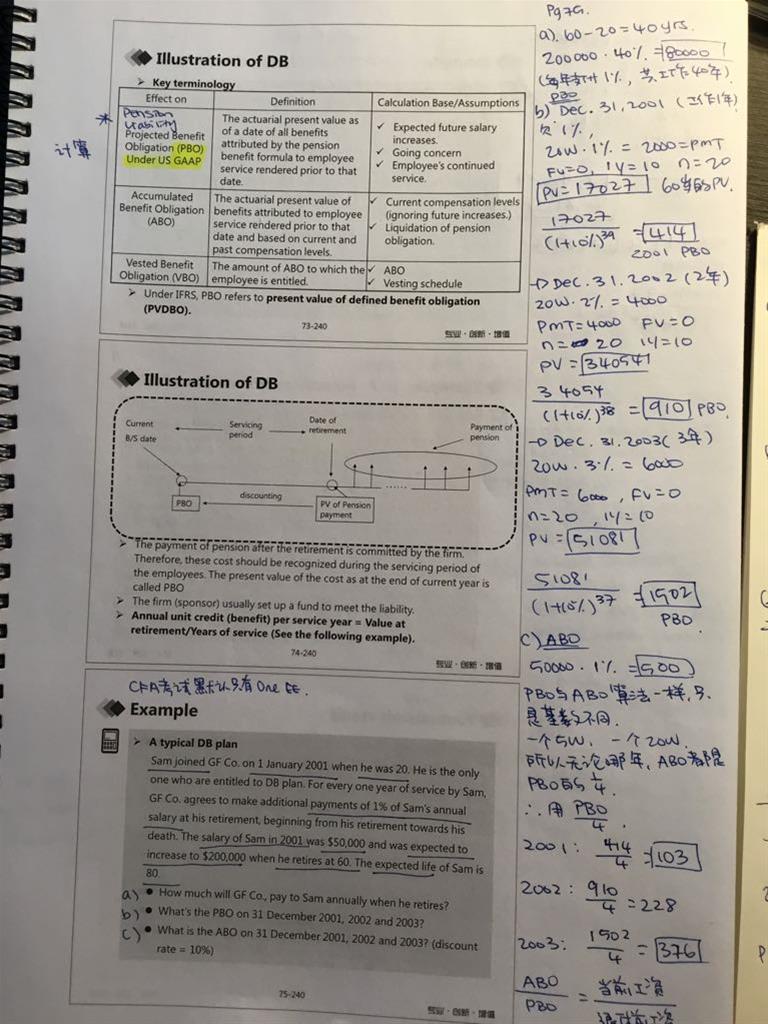 Illustration of DB
➤ Key terminology
Effect on Definition Calculation Base/Assumptions
* Pension
Liability
计算
Projected Benefit
Obligation (PBO)
Under US GAAP
The actuarial present value as
of a date of all benefits
attributed by the pension
benefit formula to employee
service rendered prior to that
date.
✓ Expected future salary
increases.
✓ Going concern
✓ Employee's continued
service.
Accumulated
Benefit Obligation
(ABO)
The actuarial present value of
benefits attributed to employee
service rendered prior to that
date and based on current and
past compensation levels.
✓ Current compensation levels
(ignoring future increases.)
✓ Liquidation of pension
obligation.
Vested Benefit
Obligation (VBO)
The amount of ABO to which the
employee is entitled.
✓ ABO
✓ Vesting schedule
➤ Under IFRS, PBO refers to present value of defined benefit obligation
(PVDBO).
73-240
专业·创新·增值
Illustration of DB
Current
B/S date
Servicing
period
Date of
retirement
Payment of
pension
......
discounting
PBO
PV of Pension
payment
➤ The payment of pension after the retirement is committed by the firm.
Therefore, these cost should be recognized during the servicing period of
the employees. The present value of the cost as at the end of current year is
called PBO
➤ The firm (sponsor) usually set up a fund to meet the liability.
➤ Annual unit credit (benefit) per service year = Value at
retirement/Years of service (See the following example).
74-240
专业·创新·增值
CFA考试默认只有One EE.
Example
➤ A typical DB plan
Sam joined GF Co. on 1 January 2001 when he was 20. He is the only
one who are entitled to DB plan. For every one year of service by Sam,
GF Co. agrees to make additional payments of 1% of Sam's annual
salary at his retirement, beginning from his retirement towards his
death. The salary of Sam in 2001 was $50,000 and was expected to
increase to $200,000 when he retires at 60. The expected life of Sam is
80.
a) ● How much will GF Co., pay to Sam annually when he retires?
b) ● What's the PBO on 31 December 2001, 2002 and 2003?
c) ● What is the ABO on 31 December 2001, 2002 and 2003? (discount
rate = 10%)
75-240
专业·创新·增值
Pg 75.
a). 60-20=40yrs.
200000·40%=80000
(每年支付1%, 共工作40年)
PBO
b) Dec.31,2001 (工作1年)
欠1%,
20W·1% = 2000=PMT
FV=0, IY=10 n=20
PV=17027 60岁的PV.
17027
(1+10%)^39 = 414
2001 PBO
→ Dec.31.2002 (2年)
20W·2% = 4000
PMT=4000 FV=0
n= 20 IY=10
PV = 34054
34054
(1+10%)^38 = 910 PBO.
→ Dec.31.2003 (3年)
20W·3% = 6000
PMT= 6000, FV=0
n=20, IY=10
PV = 51081
51081
(1+10%)^37 = 1502
PBO
C) ABO
50000·1% = 500
PBO与ABO算法一样,只
是基数不同.
一个5W, 一个20W.
所以无论哪年, ABO都是
PBO的1/4.
∴ 用 PBO/4.
2001: 414/4 = 103
2002: 910/4 = 228
2003: 1502/4 = 376
ABO/PBO = 当前工资